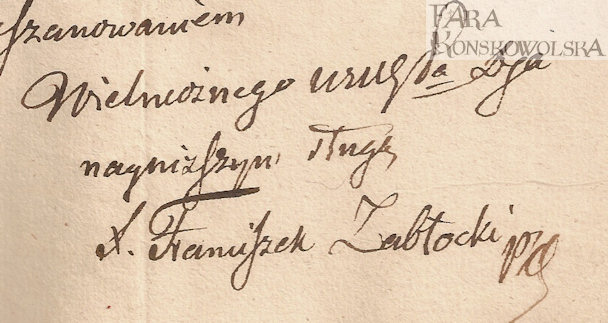 szanowaniem
FARA
KONSKOWOLSKA
Wielmożnego
nayniższym sługą
X. Franciszek Zabłocki